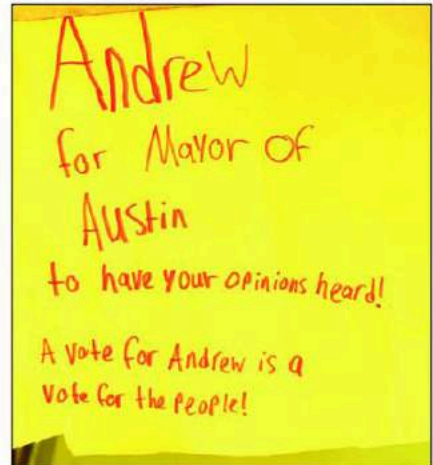 Andrew
for Mayor of
Austin
to have your opinions heard!
A vote for Andrew is a
vote for the people!